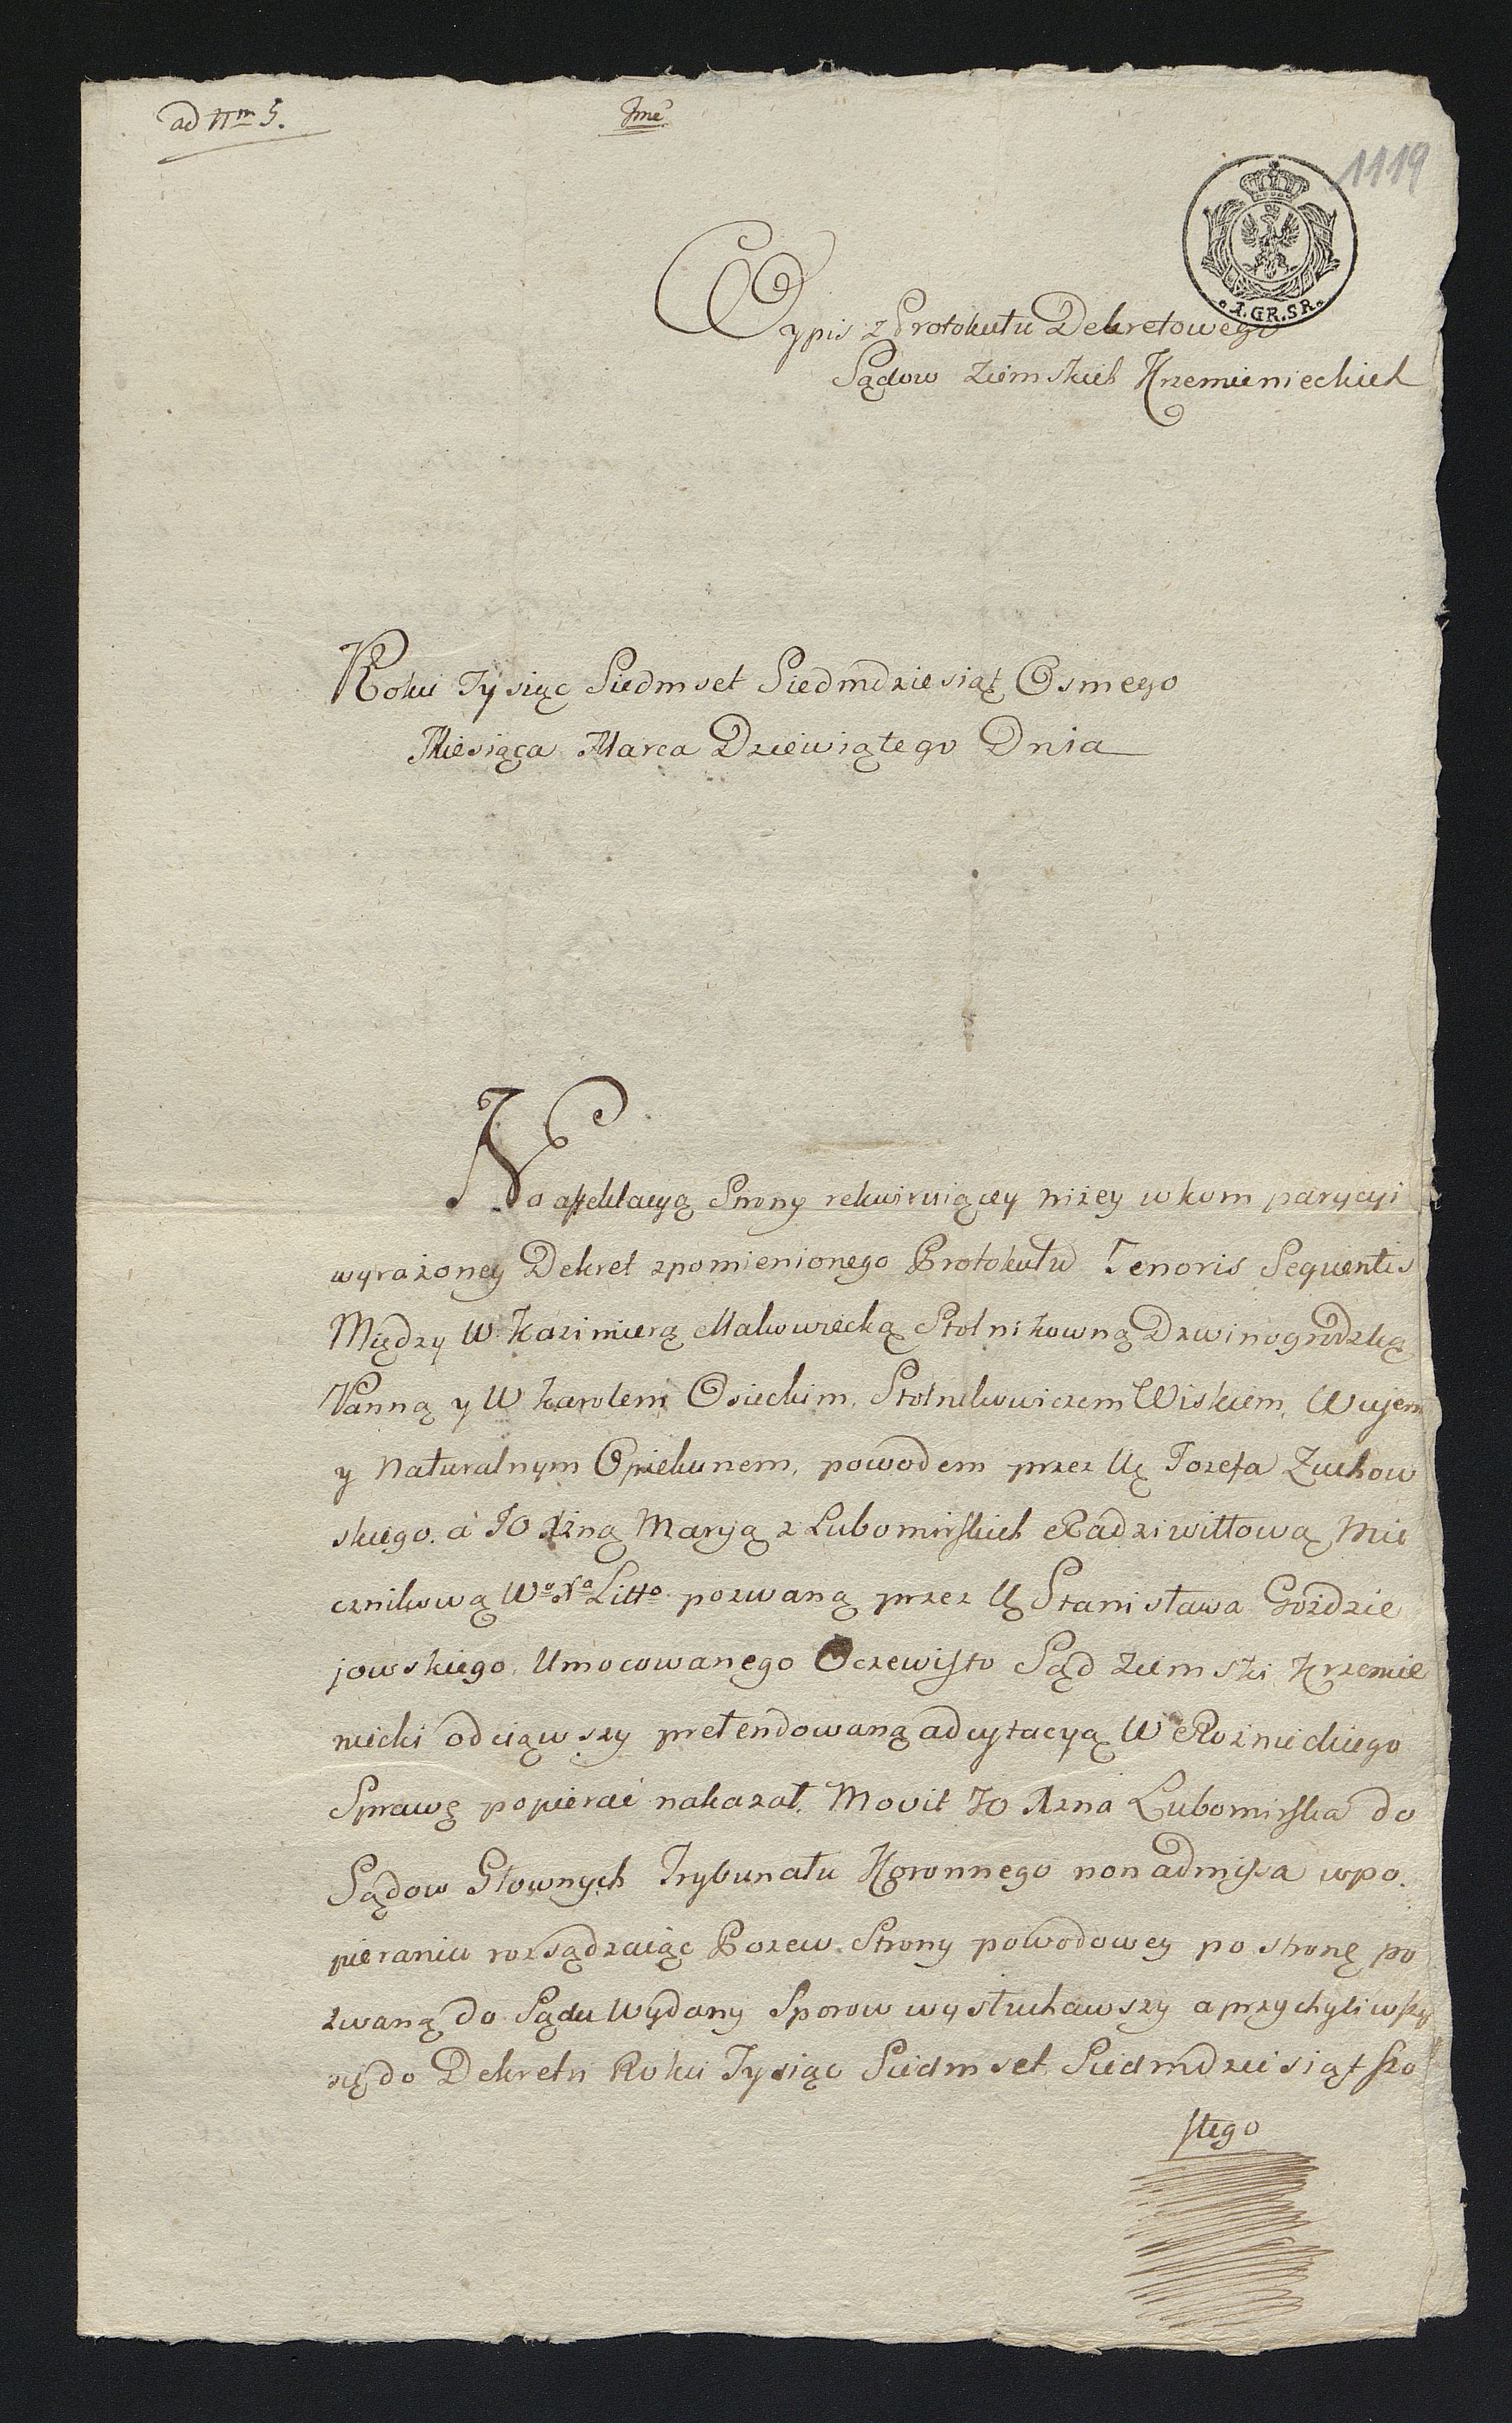 ad Nm 5.
1119
1.GR.SR.
Wypis z Protokułu Dekretowego
Sądow Ziemskich Krzemienieckich
Roku Tysiąc Siedmset Siedmdziesiąt Osmego
Miesiąca Marca Dziewiątego Dnia
Na affektacyą Strony rekwiruiącey niżey w kom parycyi
wyrażoney Dekret zpomienionego Protokułu Tenoris Sequentis
Między W. Kazimierą Makowiecką Stolnikowną Dzwinogrodzką
Panną y W Karolem Osieckim, Stolnikowiczem Wiskiem, Wujem
y Naturalnym Opiekunem, powodem przez Ur Jozefa Zuchow
skiego. a JO Xzną Maryą z Lubomirskich Radziwiłłową Mie
cznikową Wo Xa Litto pozwaną przez Ur Stanisława Gozdzie
jowskiego, Umocowanego Oczewisto Sąd Ziemski Krzemie
niecki odciąwszy pretendowaną adcytacyą W Roznieckiego
Sprawę popierać nakazał. Movit JO Xzna Lubomirska do
Sądow Głownych Trybunału Koronnego non admissa w po.
pieraniu rozsądzaiąc Pozew Strony powodowey po stronę po
zwaną do Sądu Wydany Sporow wysłuchawszy a przychyliwszy
się do Dekretu Roku Tysiąc Siedmset Siedmdziesiąt szo
stego